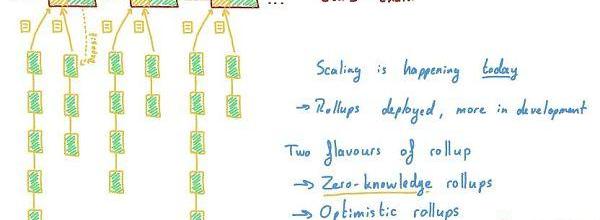 Deposit
Scaling is happening today
→ Rollups deployed, more in development
Two flavours of rollup
→ Zero-knowledge rollups
→ Optimistic rollups